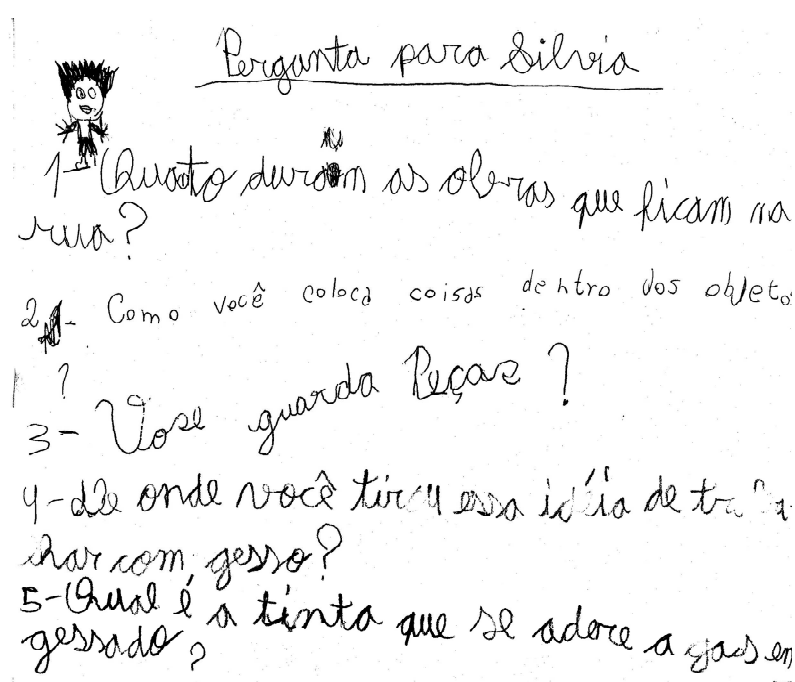 Perganta para Silvia
1- Quato duram as obras que ficam na
rua?
2- Como você coloca coisas dentro dos objetos
?
3- Vose guarda Peças?
4- de onde você tirou essa idéia de traba
lhar com gesso?
5- Qual é a tinta que se adere a
gessado?